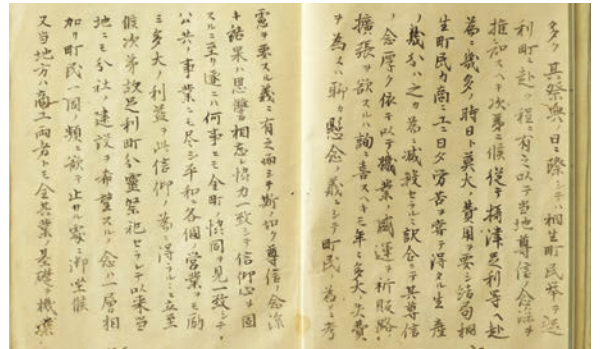 多ク其祭典ノ日ニ際シテハ桐生町民挙テ足
利町ニ赴ク程ニ有之以テ当地尊信ノ念深キ
推知スヘキ次第ニ候従テ摂津足利等ヘ赴
為ニ幾多ノ時日ト莫大ノ費用ヲ要シ結局桐
生町民カ商ニ工ニ日夕労苦ヲ嘗テ得タル生産
ノ幾分ハ之カ為ニ減殺セラルヽ訳合ニテ其尊信
ノ念厚キニ依テ以テ機業ノ盛運ヲ祈販路ノ
擴張ヲ欲スルハ洵ニ喜スヘキモ年ニ多大ノ失費
ヲ為スハ聊カ懸念ノ義ニシテ町民ノ為ニ考
慮ヲ要スル義ニ有之而シテ斯ノ如ク尊信ノ念深
キ結果ハ恩讐相忘レ協力一致シテ信仰心ヲ固
スルニ至リ遂ニハ何事ニモ全町ノ協同ヲ見一致シテ
公共ノ事業ニモ尽シ平和ニ各個ノ営業ヲモ励
ミ多大ノ利益ヲ此信仰ノ為ニ得タルニ立至
候次第故足利町分霊祭祀セラレテ以来当
地ニモ分社ノ建設ヲ希望スルノ念ハ一層相
加リ町民一同ノ頻ニ歓テ止サル処ニ御坐候
又当地方ハ商工両者トモ全其業ノ基礎ヲ機業